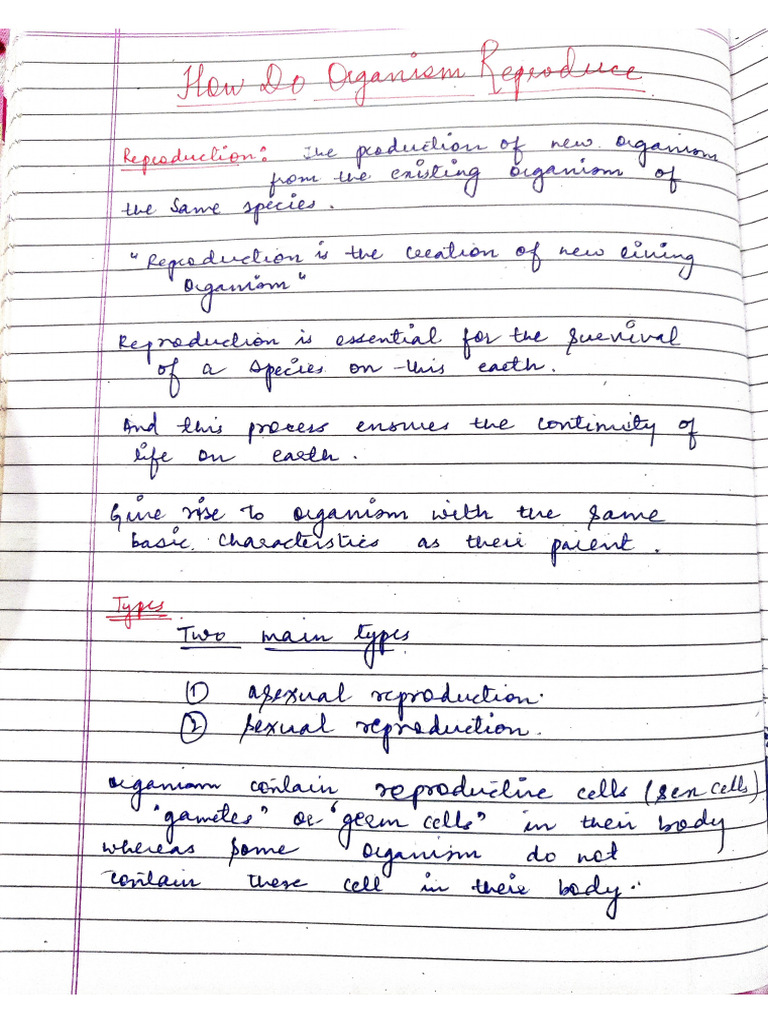 How Do Organism Reproduce
Reproduction: The production of new organism
from the existing organism of
the same species.
"Reproduction is the creation of new living
organism"
Reproduction is essential for the survival
of a species on this earth.
And this process ensures the continuity of
life on earth.
Give rise to organism with the same
basic characteristics as their parent.
Types
Two main types
① asexual reproduction.
② sexual reproduction.
organism contain reproductive cells (sex cells)
"gametes" or "germ cells" in their body
whereas some organism do not
contain these cell in their body.